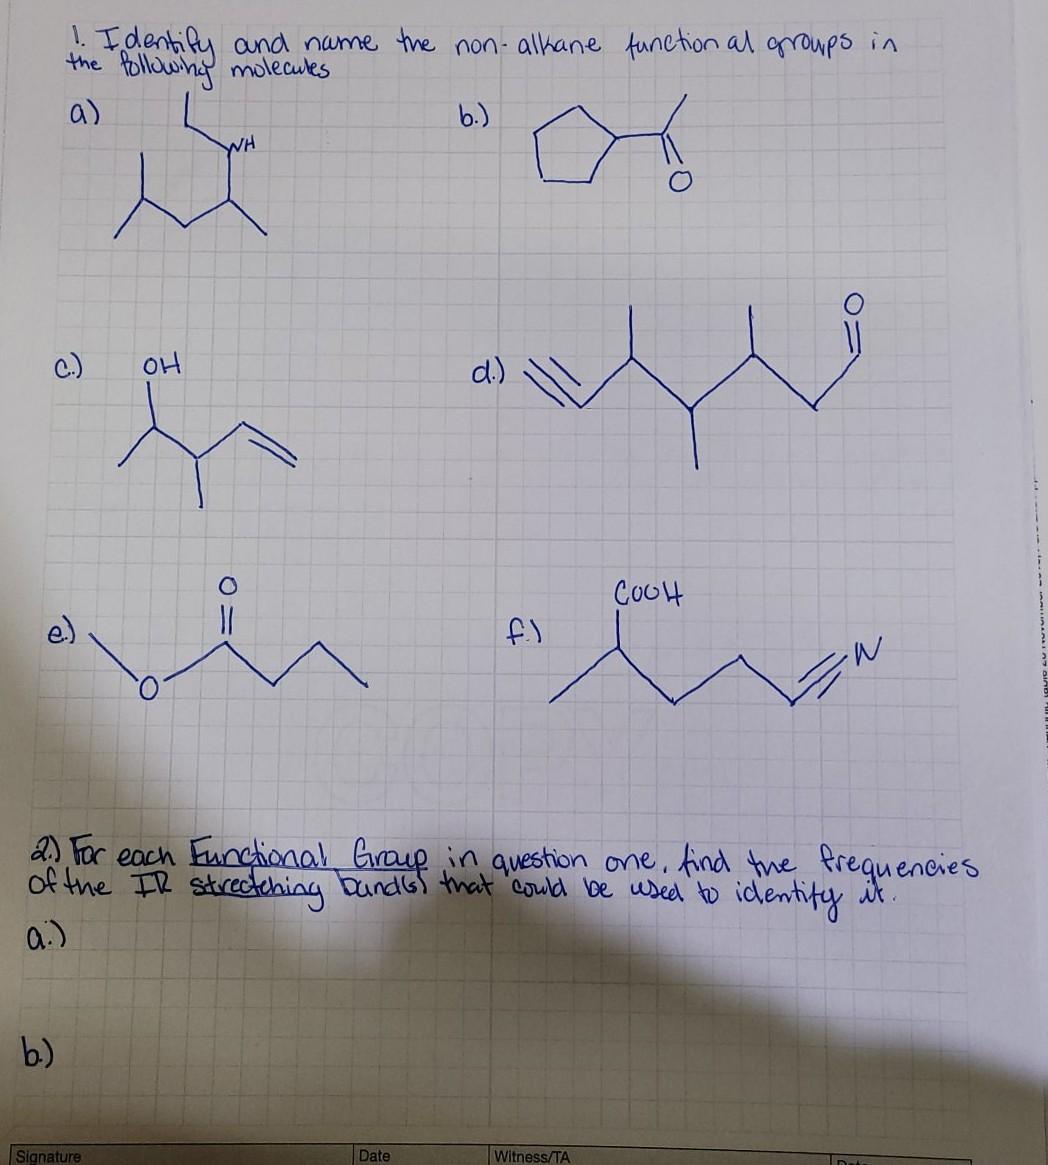 1. Identify and name the non-alkane functional groups in
the following molecules
a) b.)
NH
O
c.) OH d.) O
e.) O f.) COOH
O N
2.) For each Functional Group in question one, find the frequencies
of the IR stretching band(s) that could be used to identify it.
a.)
b.)
Signature Date Witness/TA